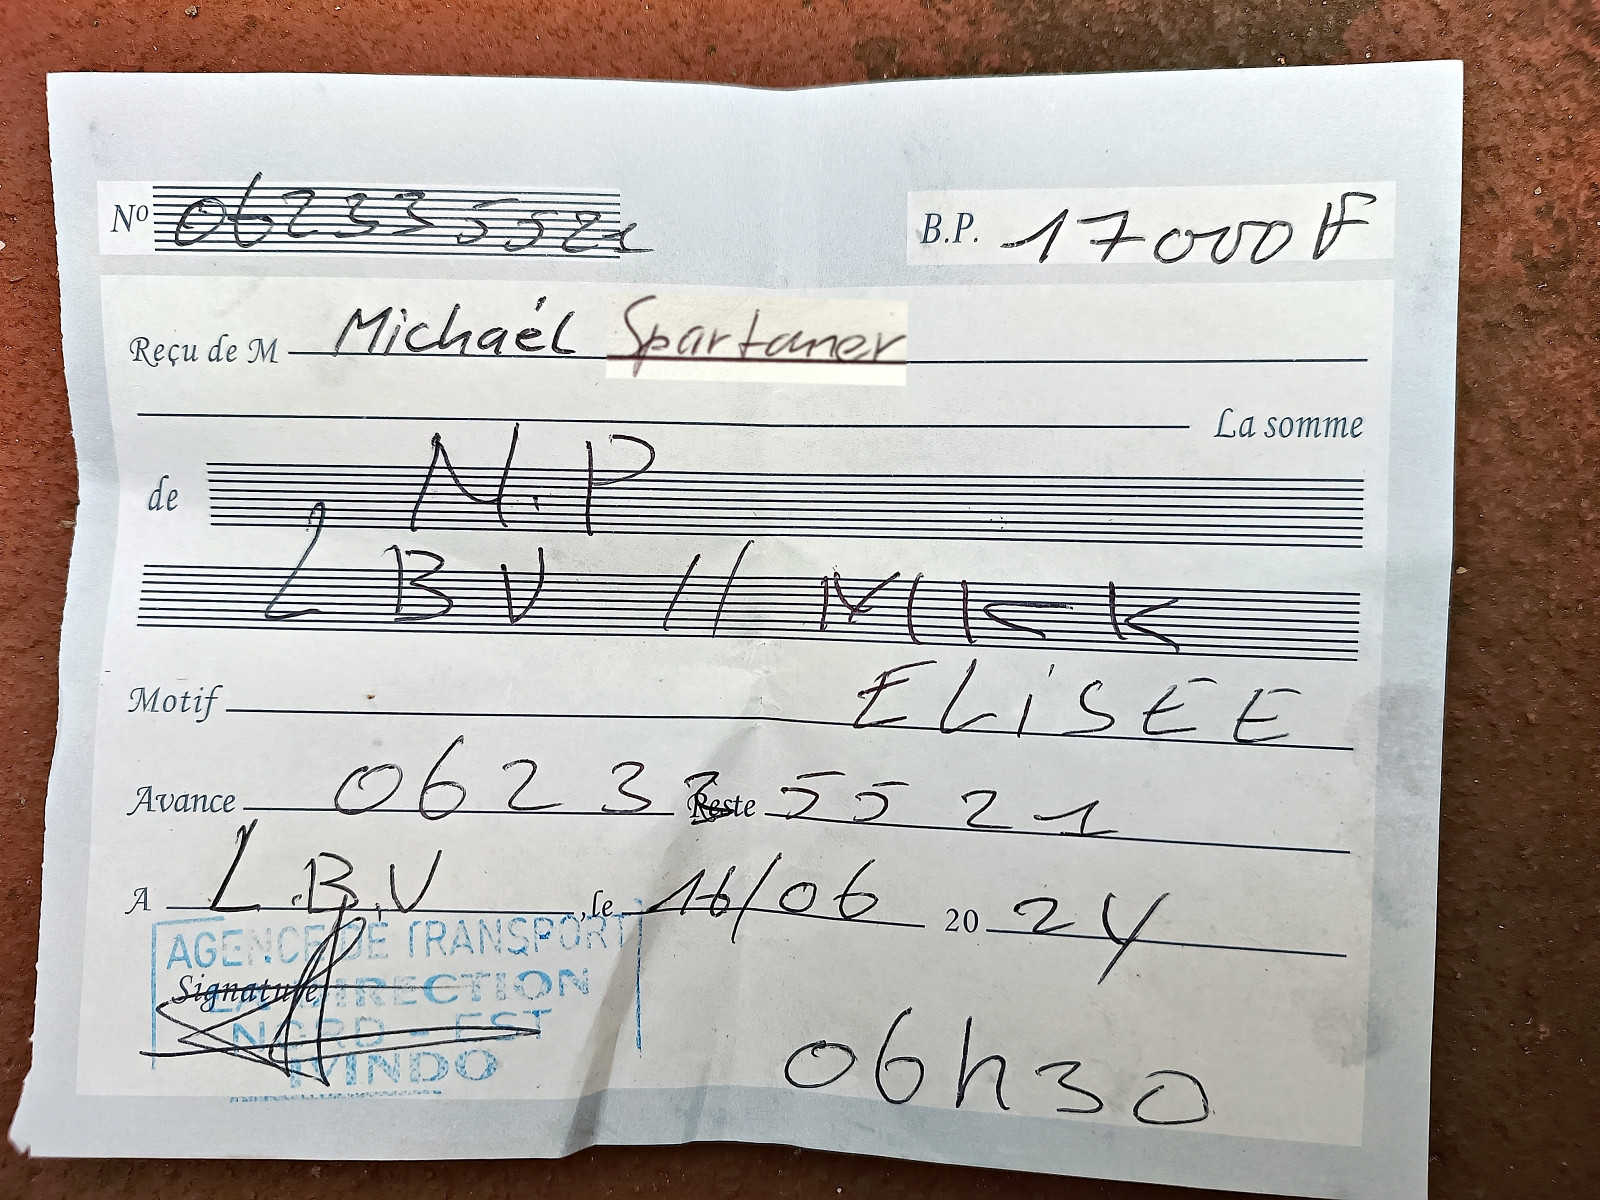 Nº 062335521 B.P. 17000F
Reçu de M Michaël Spartaner
La somme
de N.P
LBV // MKK
Motif ELISEE
Avance 06233 Reste 5521
A L.B.V, le 16/06 2024
AGENCE DE TRANSPORT
Signature LA DIRECTION
NORD - EST
IVINDO
06h30